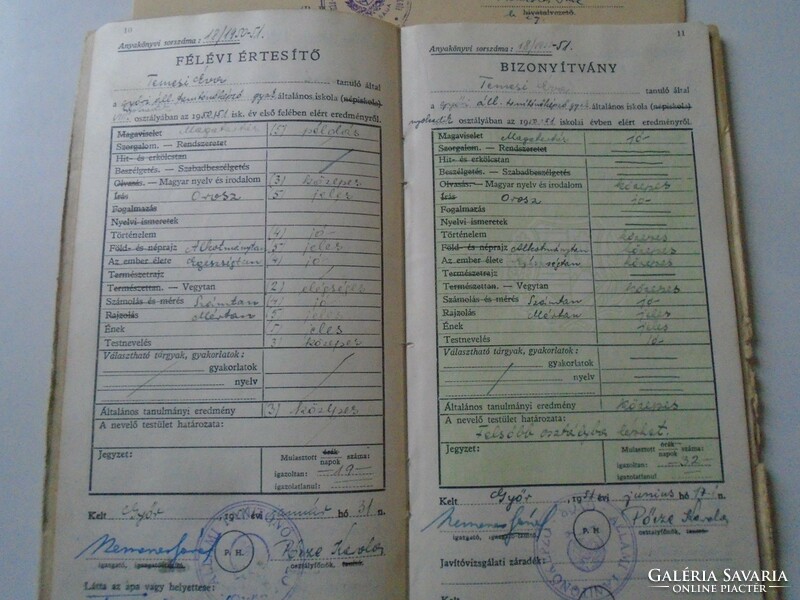 h. hivatalvezető.
10
Anyakönyvi sorszáma: 18/1950-51.
FÉLÉVI ÉRTESÍTŐ
Temesi Éva tanuló által
a győri áll. tanítónőképző gyak általános iskola (népiskola)
osztályában az 1950/51 isk. év első felében elért eredményről.
Magaviselet Magatartás (5) példás
Szorgalom. — Rendszeretet
Hit- és erkölcstan
Beszélgetés. — Szabadbeszélgetés
Olvasás. — Magyar nyelv és irodalom (3) közepes
Írás Orosz 5 jeles
Fogalmazás
Nyelvi ismeretek
Történelem (4) jó
Föld- és néprajz Alkotmánytan 5 jeles
Az ember élete Egészségtan 4) jó
Természetrajz
Természettan. — Vegytan (2) elégséges
Számolás és mérés Számtan (4) jó
Rajzolás Mértan (5 jeles
Ének (5 jeles
Testnevelés 3) közepes
Választható tárgyak, gyakorlatok:
gyakorlatok
nyelv
Általános tanulmányi eredmény 3) közepes
A nevelő testület határozata:
Jegyzet: Mulasztott órák napok száma:
igazoltan: —19—
igazolatlanul:
Kelt Győr, 19 évi január hó 31 n.
P. H. Pőcze Károly
igazgató, osztályfőnök,
Látta az apa vagy helyettese:
11
Anyakönyvi sorszáma: 18/1950-51.
BIZONYÍTVÁNY
Temesi Éva tanuló által
a győri áll. tanítónőképző gyak általános iskola (népiskola)
nyolcadik osztályában az 1950/51 iskolai évben elért eredményről.
Magaviselet Magatartás jó
Szorgalom. — Rendszeretet
Hit- és erkölcstan
Beszélgetés. — Szabadbeszélgetés
Olvasás. — Magyar nyelv és irodalom közepes
Írás Orosz jó
Fogalmazás
Nyelvi ismeretek
Történelem közepes
Föld- és néprajz Alkotmánytan közepes
Az ember élete Egészségtan közepes
Természetrajz
Természettan. — Vegytan közepes
Számolás és mérés Számtan jó
Rajzolás Mértan jeles
Ének jeles
Testnevelés jó
Választható tárgyak, gyakorlatok:
gyakorlatok
nyelv
Általános tanulmányi eredmény közepes
A nevelő testület határozata:
Felsőbb osztályba léphet.
Jegyzet: Mulasztott órák napok száma:
igazoltan: —32—
igazolatlanul:
Kelt Győr, 1951 évi június hó n.
P. H. Pőcze Károly
igazgató, osztályfőnök,
Javítóvizsgálati záradék:
Kelt
GALÉRIA SAVARIA
ONLINE PIACTÉR